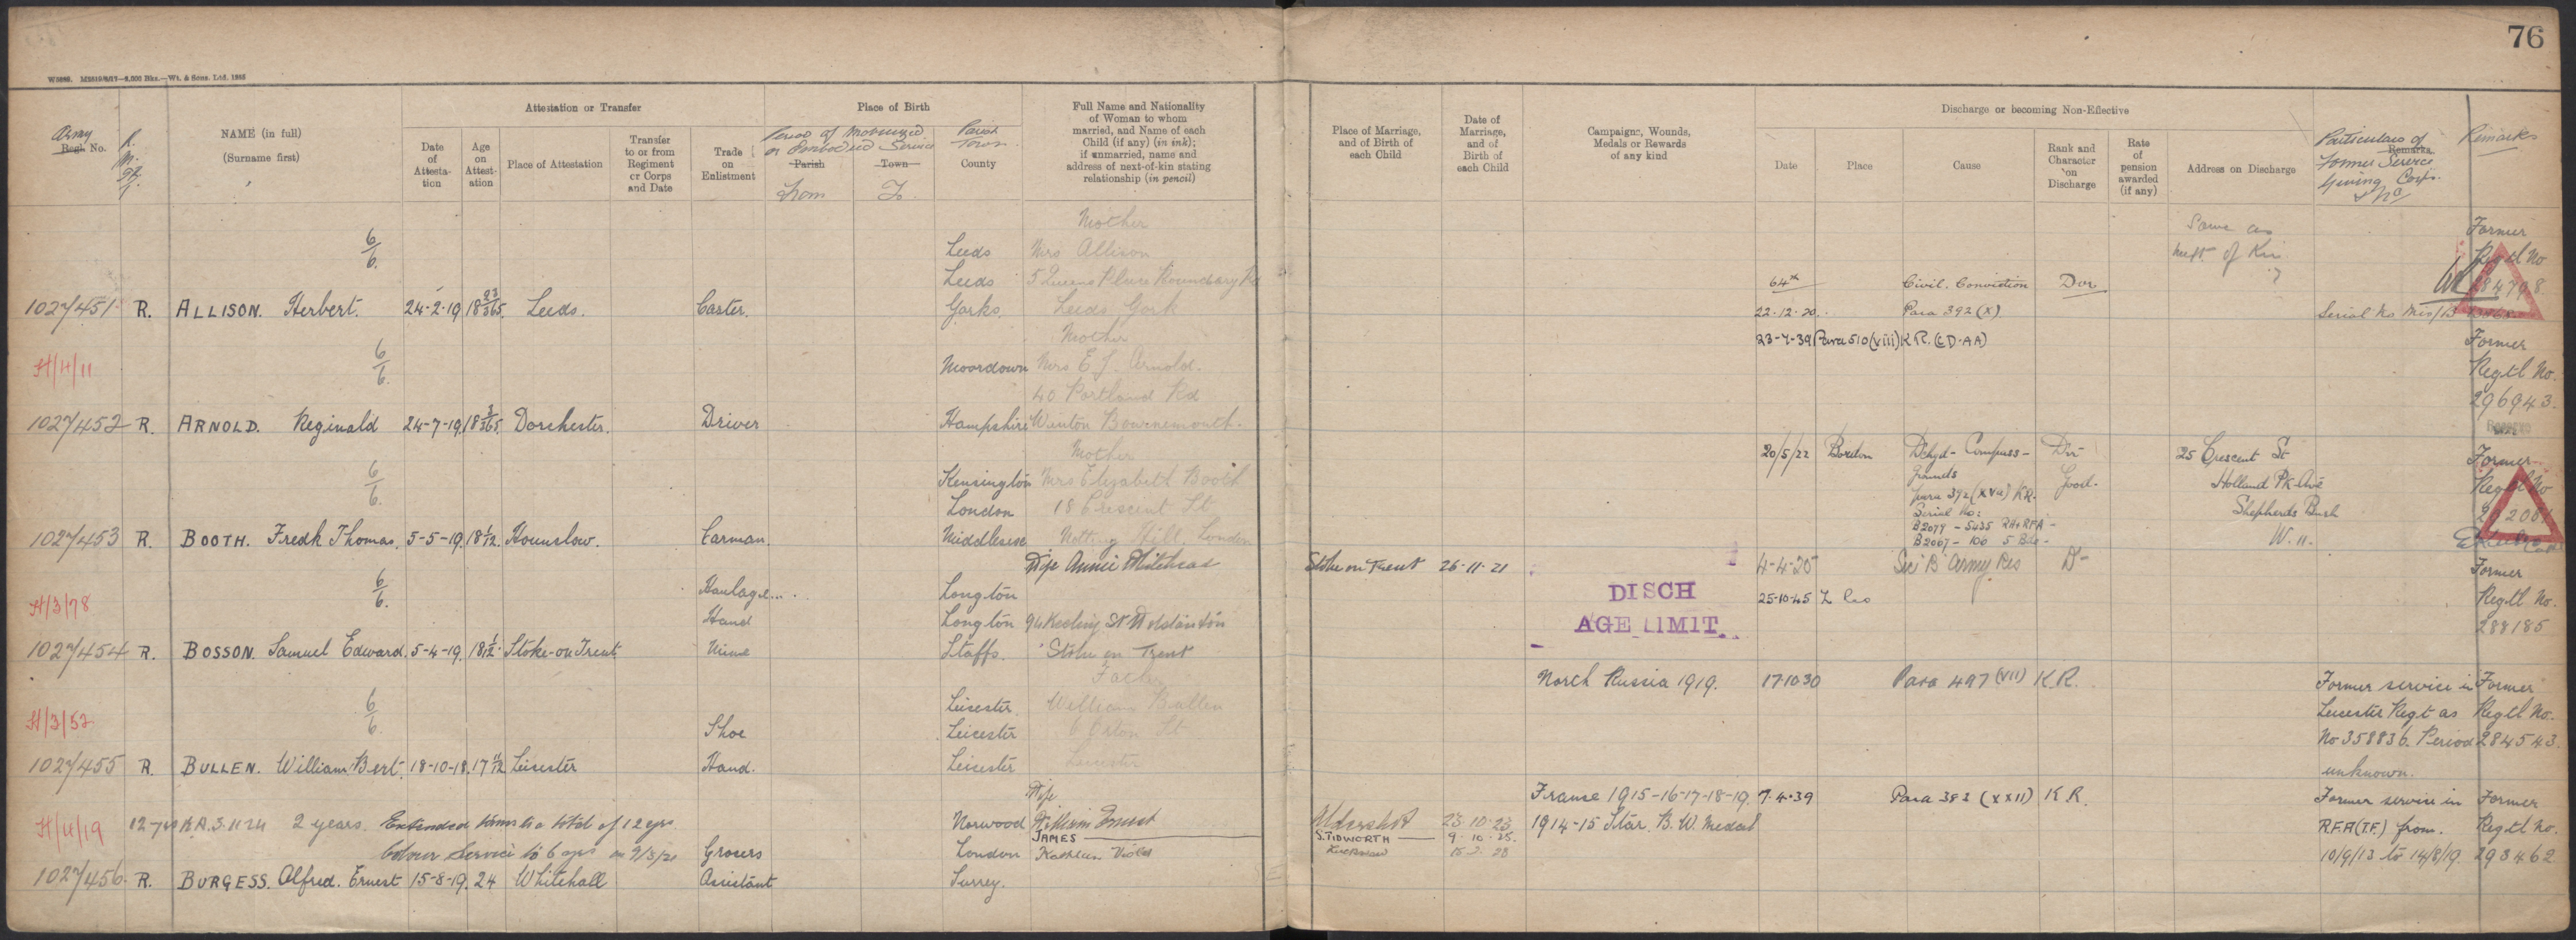 76
W3880. M2819/8/17—8,000 Bks.—Wt. & Sons. Ltd. 1865
Army
Regtl. No.
NAME (in full)
(Surname first)
Attestation or Transfer
Date of Attestation
Age on Attestation
Place of Attestation
Transfer to or from Regiment or Corps and Date
Trade on Enlistment
Place of Birth
Period of
or Service
Parish
Town
From
To
Parish
Town
County
Full Name and Nationality of Woman to whom married, and Name of each Child (if any) (in ink); if unmarried, name and address of next-of-kin stating relationship (in pencil)
Place of Marriage, and of Birth of each Child
Date of Marriage, and of Birth of each Child
Campaigns, Wounds, Medals or Rewards of any kind
Discharge or becoming Non-Effective
Date
Place
Cause
Rank and Character on Discharge
Rate of pension awarded (if any)
Address on Discharge
Remarks
Particulars of Former Service Giving Corps & No
Remarks
1027451 R. ALLISON. Herbert. 24-2-19 18 23/365 Leeds. Carter. Leeds Leeds Yorks.
6/6
Mother
Mrs Allison
5 Queens Place Boundary Rd
Leeds York
22.12.20. Civil. Conviction Para 392 (X) Dvr
Same as next of Kin
Former Regtl No
H/4/11
6/6
1027452 R. ARNOLD. Reginald 24-7-19 18 3/365 Dorchester. Driver Moordown Hampshire
Mother
Mrs E J. Arnold.
40 Portland Rd
Winton Bournemouth.
23-7-39 Para 510 (viii) K R.
Former Regtl No. 296943.
6/6
1027453 R. BOOTH. Fredk Thomas. 5-5-19 18 1/12 Hounslow. Carman. Kensington London Middlesex
Mother
Mrs Elizabeth Booth
18 Crescent St
Notting Hill, London
20/5/22 Bordon Dchgd- Compass- grounds
para 392 (xva) KR.
Serial No:
B2079 - 5435 RH&RFA -
B2067 - 100 5 Bde -
Dvr Good.
25 Crescent St
Holland Pk Ave
Shepherds Bush
W. 11.
Former Regtl No
H/3/78
6/6
1027454 R. BOSSON. Samuel Edward. 5-4-19. 18 1/12 Stoke-on-Trent Haulage Hand Mine Longton Longton Staffs.
Wife Annie Whitehead
94 Keeling St Wolstanton
Stoke on Trent
Stoke on Trent 26-11-21
DISCH
AGE LIMIT.
4-4-25 Sec B Army Res D-
25-10-45
Former Regtl No. 288185
H/3/52
6/6
1027455 R. BULLEN. William Bert. 18-10-18. 17 11/12 Leicester Shoe Hand. Leicester. Leicester Leicester
Father
William Bullen
6 St
Leicester
North Russia 1919. 17.10.30 Para 497 (VII) K R.
Former service in
Leicester Regt as
No 358836. Period
unknown.
Former Regtl No. 284543
H/4/19
12 yrs 2 years. Extended terms to a total of 12 yrs
Colour Service to 6 yrs on 9/3/21
1027456. R. BURGESS. Alfred. Ernest 15-8-19. 24 Whitehall Grocers Assistant Norwood London Surrey.
Wife
William Ernest
JAMES
Kathleen Violet
Aldershot 23.10.23
S. TIDWORTH 9.10.25.
France 1915-16-17-18-19.
1914-15 Star. B. W. Medal
7.4.39 Para 383 (XXII) K R.
Former service in
R.F.A (T.F.) from.
10/9/13 to 14/8/19.
Former Regtl No. 293462